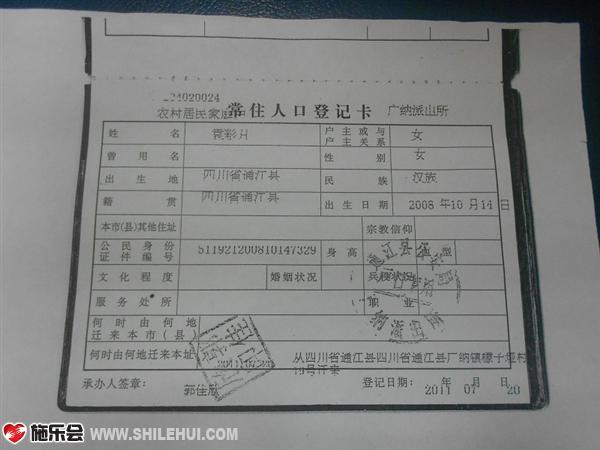 224020024
农村居民家庭户 常住人口登记卡 广纳派出所
姓 名 彩月 户主或与户主关系 女
曾用名 性别 女
出生地 四川省通江县 民族 汉族
籍贯 四川省通江县 出生日期 2008 年 10 月 14 日
本市(县)其他住址 宗教信仰
公民身份证件编号 511921200810147329 身高 血型
文化程度 婚姻状况 兵役状况
服务处所 职业
何时由何地迁来本市(县)
何时由何地迁来本址 20110720 从四川省通江县四川省通江县广纳镇檬子垭村
19号迁来
承办人签章: 郭佳 登记日期: 2011 年 07 月 20 日
施乐会 WWW.SHILEHUI.COM